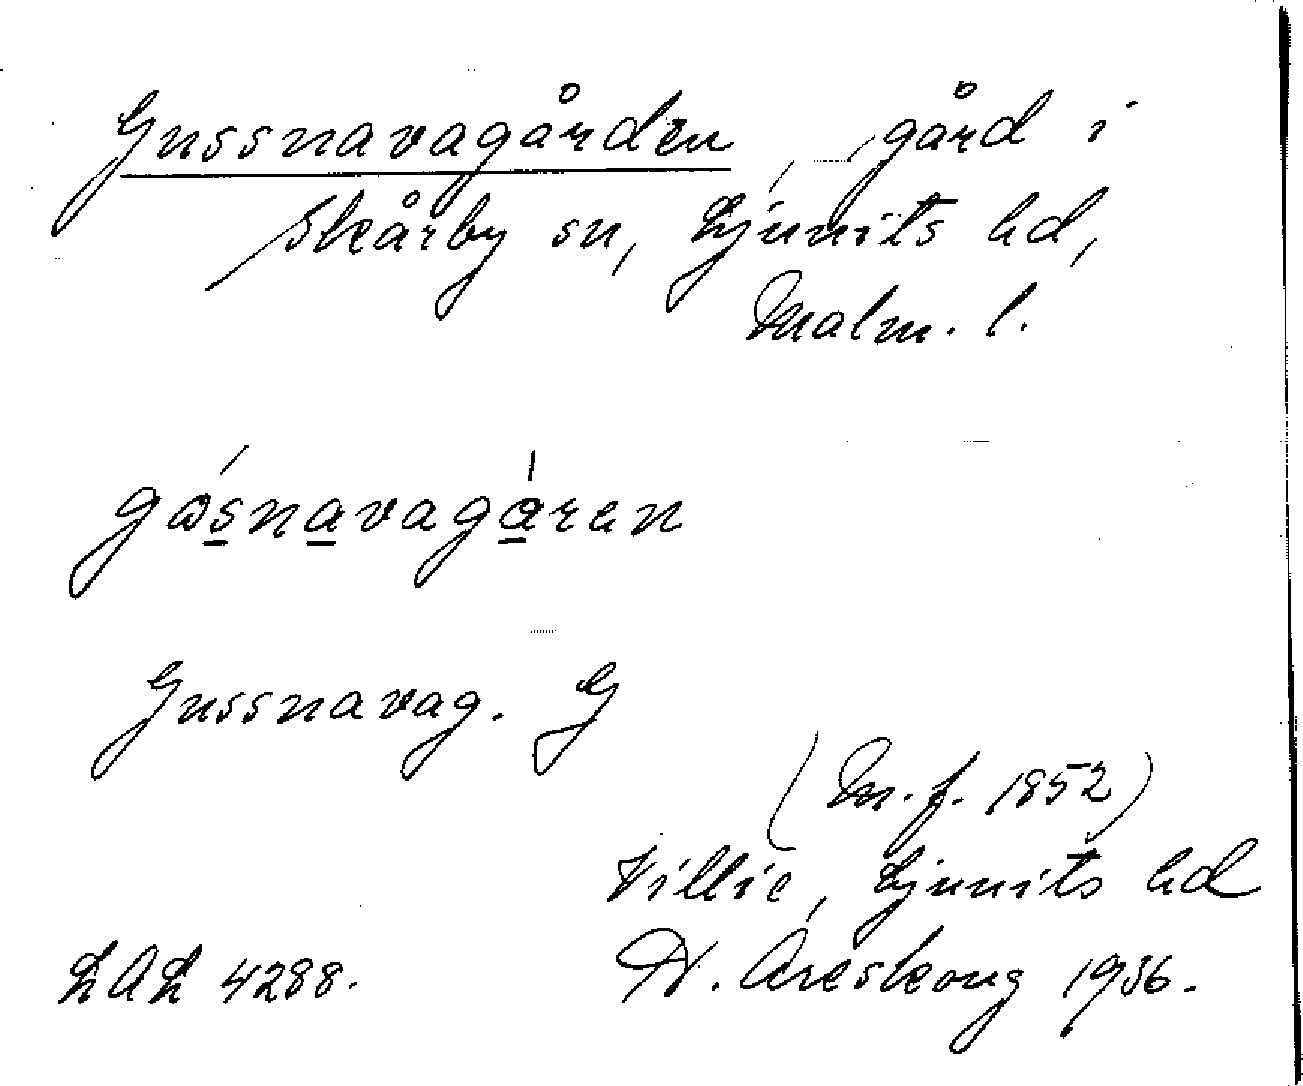 Gussnavagården, gård i
Skårby sn, Ljunits hd,
Malm. l.
gåsnavagáren
Gussnavag. G
(M. f. 1852)
Villie, Ljunits hd
LAL 4288.
H. Areskoug 1936.